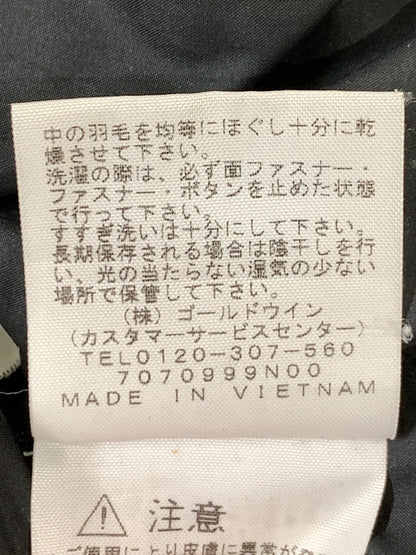 中の羽毛を均等にほぐし十分に乾
燥させて下さい。
洗濯の際は、必ず面ファスナー・
ファスナー・ボタンを止めた状態
で行って下さい。
すすぎ洗いは十分にして下さい。
長期保存される場合は陰干しを行
い、光の当たらない湿気の少ない
場所で保管して下さい。
(株)ゴールドウイン
(カスタマーサービスセンター)
TEL0120-307-560
7070999N00
MADE IN VIETNAM
注意
ご使用により皮膚に異常が